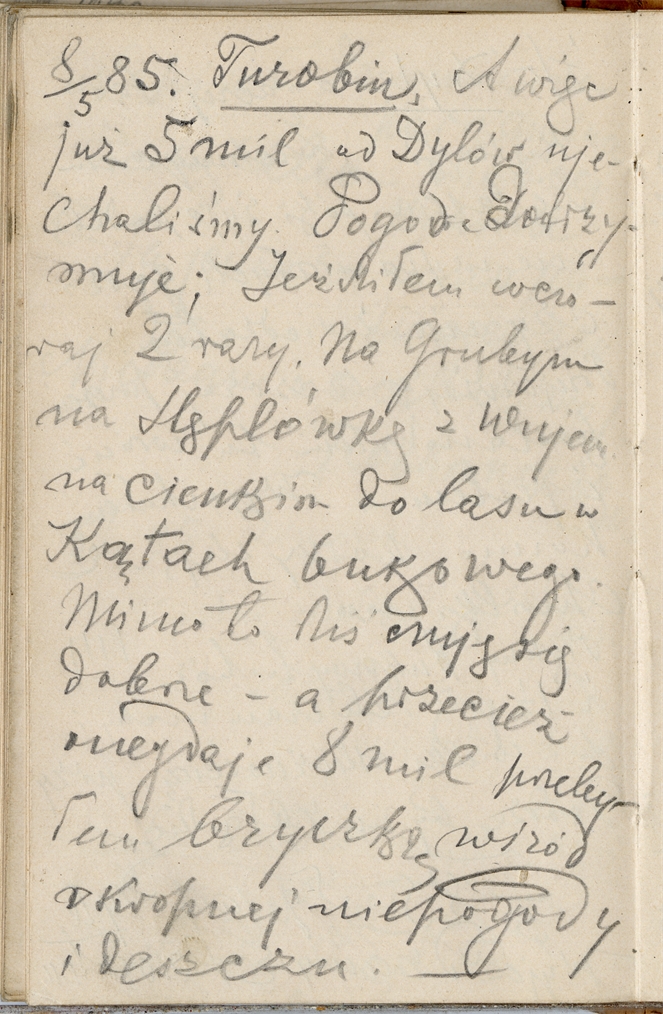 8/5 85. Turobin. A więc
już 5 mil od Dylów uje-
chaliśmy. Pogoda dotrzy-
muje; Jeździłem wczo-
raj 2 razy. Na Grubym
na z Wujem
na cienkim do lasu w
Kątach bukowego.
Mimo to dziś czuję się
dobrze - a przecież
onegdaje 8 mil przeby-
łem bryczką wśród
okropnej niepogody
i deszczu. —